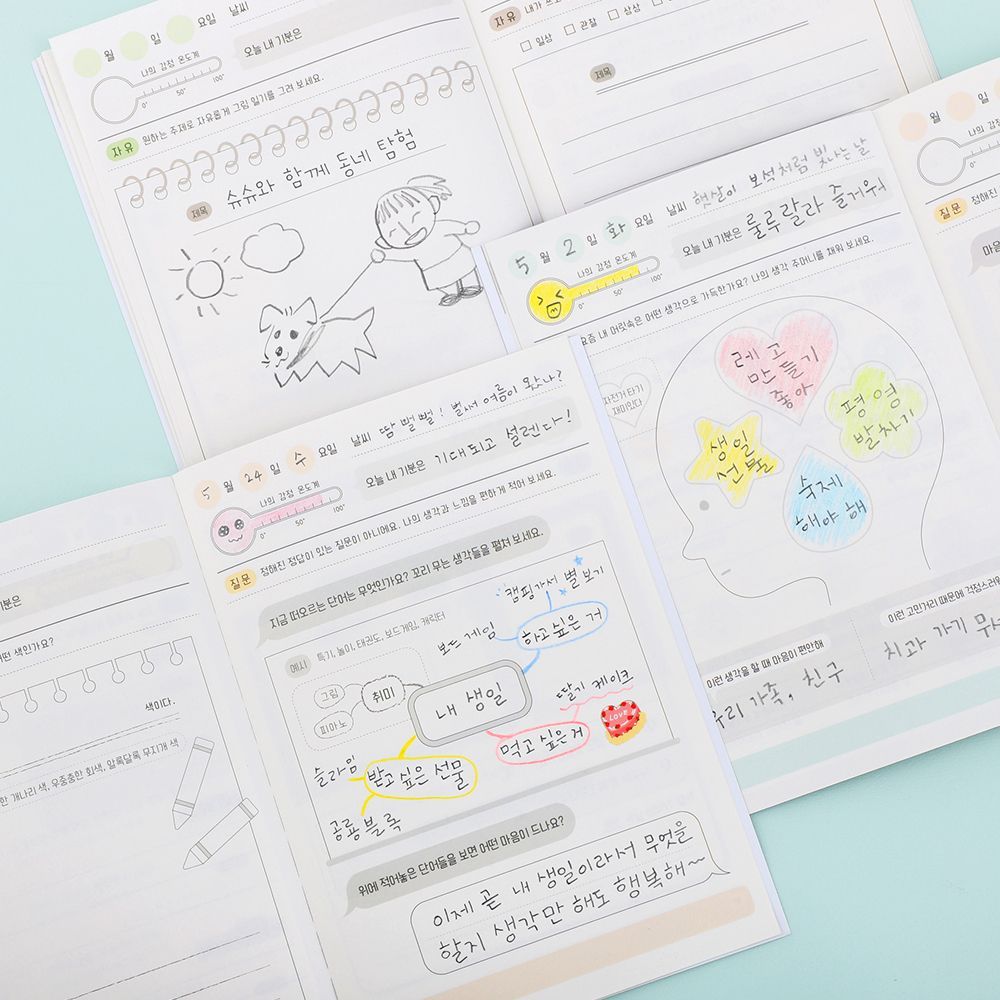 월 일 요일 날씨
나의 감정 온도계
0° 50° 100°
오늘 내 기분은
자유 원하는 주제로 자유롭게 그림 일기를 그려 보세요.
제목 슈슈와 함께 동네 탐험
자유
일상 관찰 상상
제목
5월 2일 화요일 날씨 햇살이 보석처럼 빛나는 날
나의 감정 온도계
0° 50° 100°
오늘 내 기분은 룰루랄라 즐거워
요즘 내 머릿속은 어떤 생각으로 가득한가요? 나의 생각 주머니를 채워 보세요.
자전거 타기
재미있다
레고
만들기
좋아
평영
발차기
생일
선물
숙제
해야 해
이런 생각을 할 때 마음이 편안해
우리 가족, 친구
이런 고민거리 때문에 걱정스러워
치과 가기
월 일
나의 감정
0°
질문 정해진
마음
5월 24일 수요일 날씨 땀 뻘뻘! 벌써 여름이 왔나?
나의 감정 온도계
0° 50° 100°
오늘 내 기분은 기대되고 설렌다!
질문 정해진 정답이 있는 질문이 아니에요. 나의 생각과 느낌을 편하게 적어 보세요.
지금 떠오르는 단어는 무엇인가요? 꼬리 무는 생각들을 펼쳐 보세요.
예시 특기, 놀이, 태권도, 보드게임, 캐릭터
그림
피아노
취미
보드 게임
캠핑가서 별 보기
하고 싶은 거
내 생일
딸기 케이크
먹고 싶은 거
LOVE
슬라임
받고 싶은 선물
공룡 블록
위에 적어놓은 단어들을 보면 어떤 마음이 드나요?
이제 곧 내 생일이라서 무엇을
할지 생각만 해도 행복해~
기분은
색인가요?
색이다.
개나리 색, 우중충한 회색, 알록달록 무지개 색